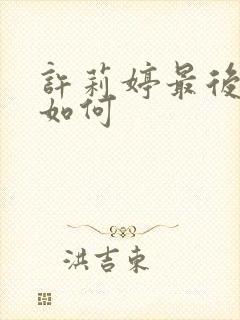 許莉婷最後
如何
洪吉東